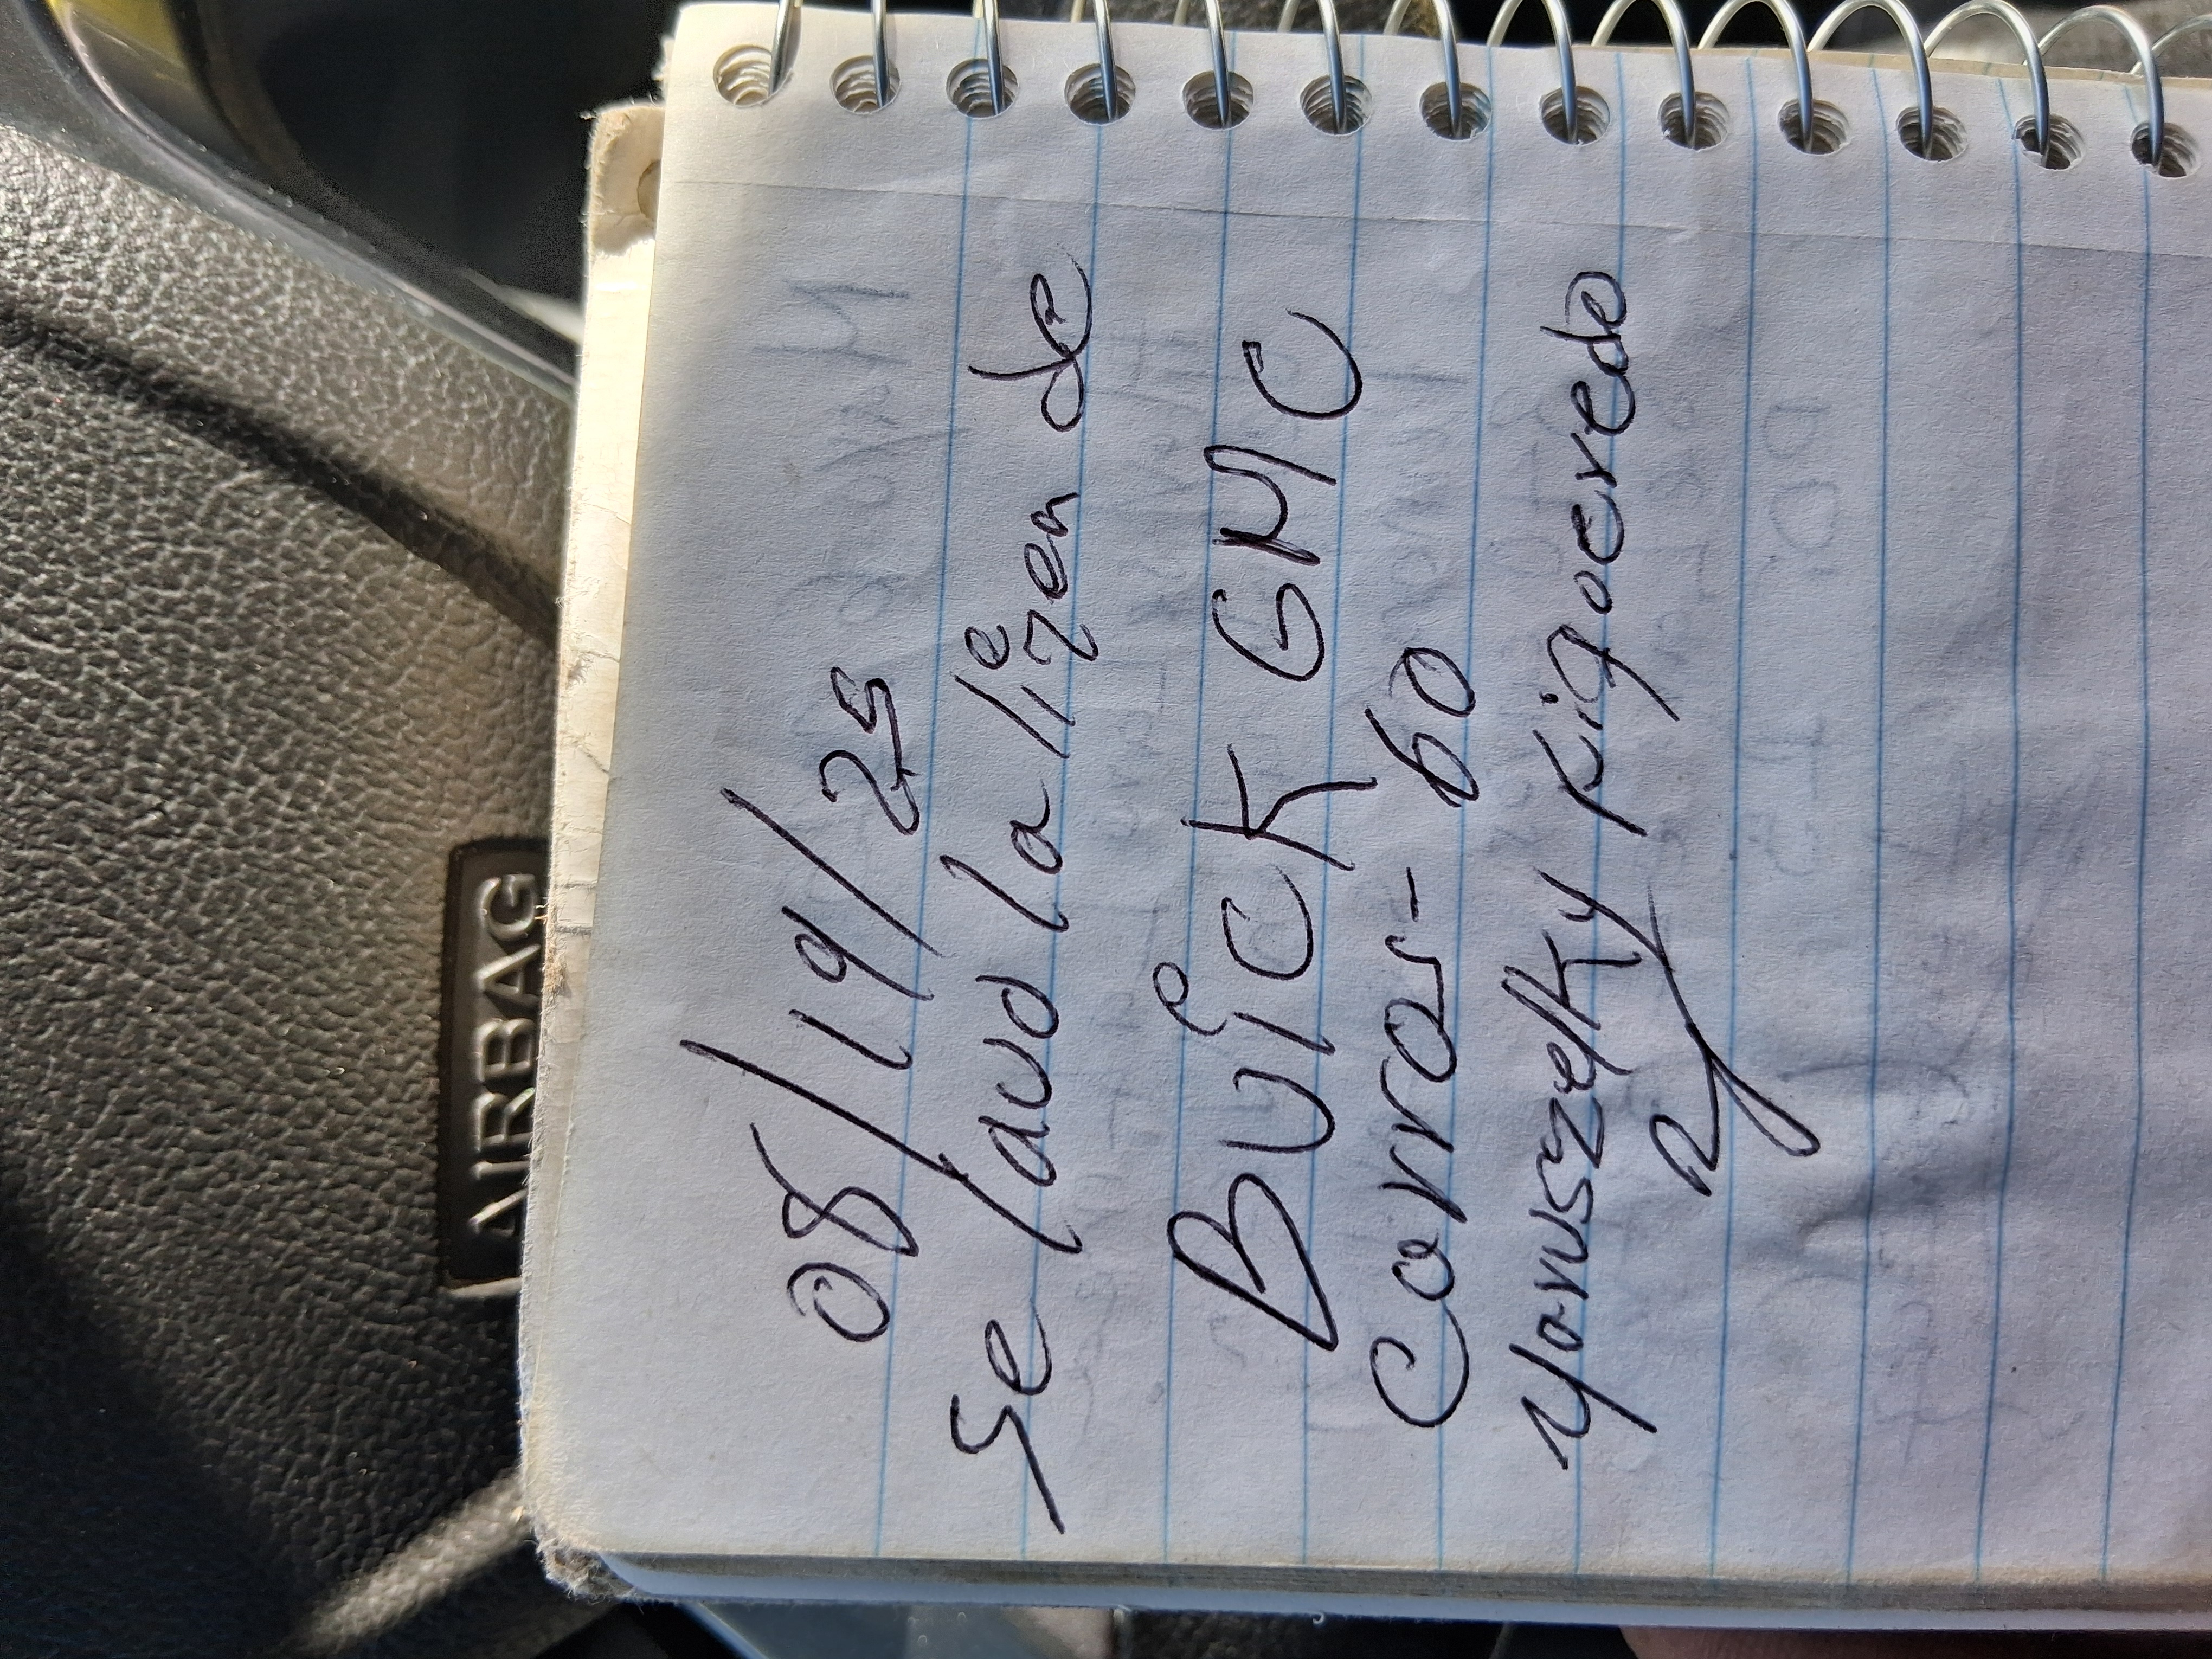 08/19/25
Se lavo la lizen de
BUiCK GMC
Carros- 60
Yoruszelky Rigoeredo
AIRBAG